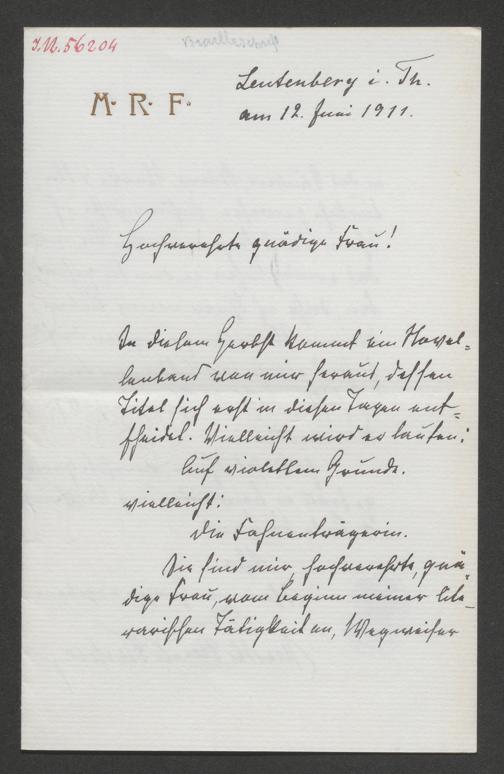 I.N. 56204
M. R. F.
Leutenberg i. Th.
am 12. Juni 1911.
Hochverehrte gnädige Frau!
In diesem Herbst kommt ein Novel-
lenband von mir heraus, dessen
Titel sich erst in diesen Tagen ent-
scheidet. Vielleicht wird er lauten:
Auf violettem Grunde.
vielleicht:
Die Fahnenträgerin.
Sie sind mir, hochverehrte, gnä-
dige Frau, vom Beginn meiner lite-
rarischen Tätigkeit an, Wegweiser